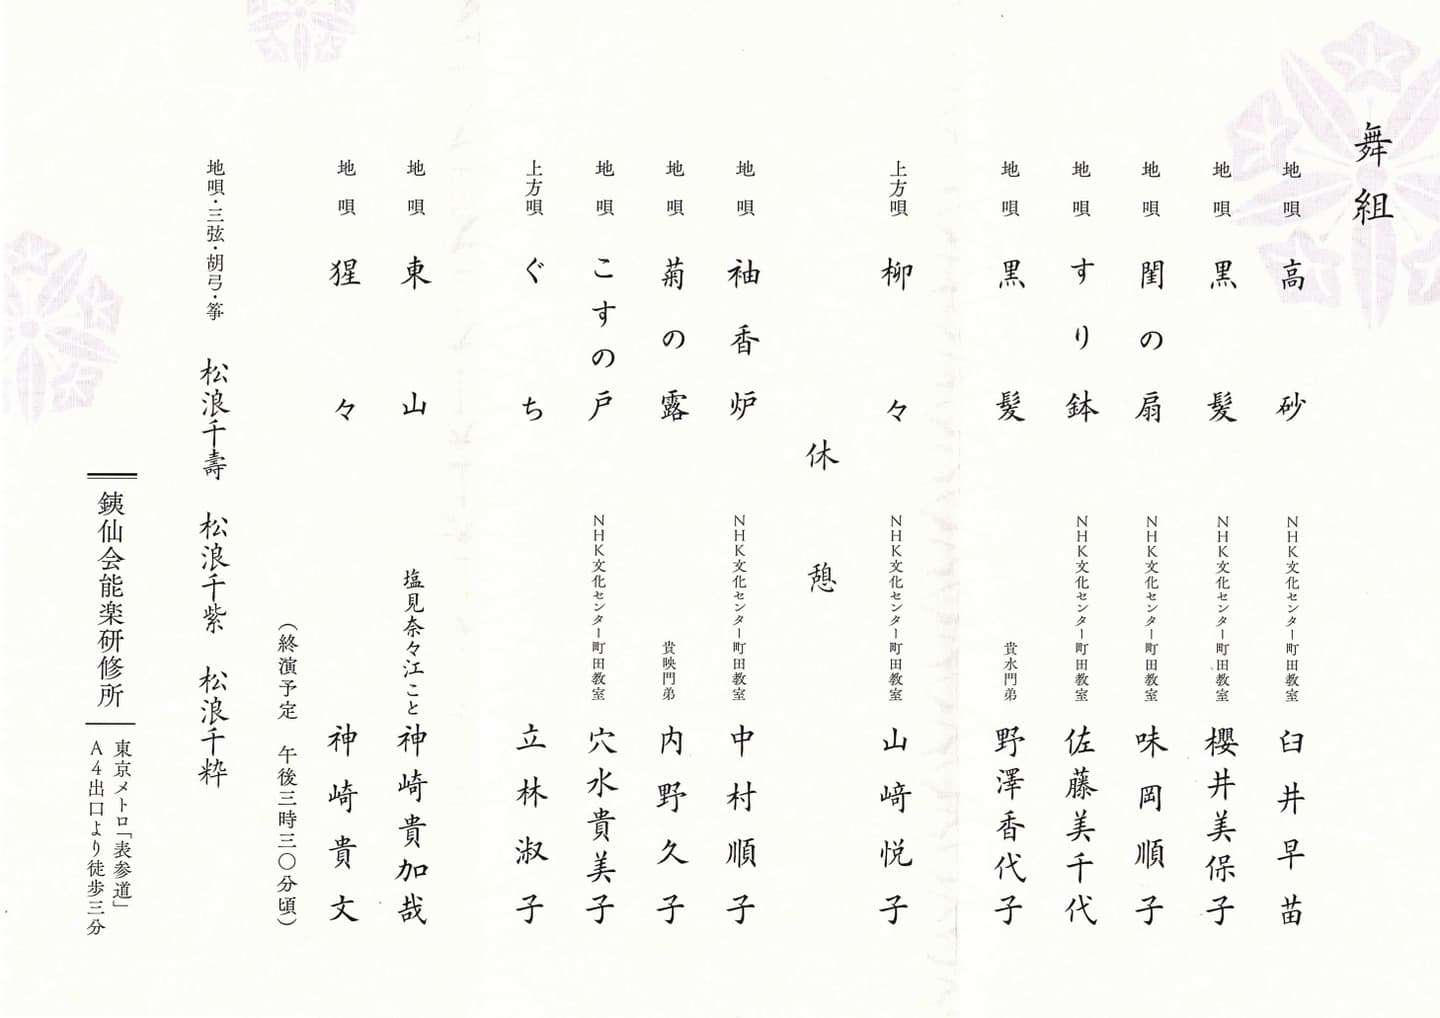 舞組
地唄 高砂 NHK文化センター町田教室 臼井早苗
地唄 黒髪 NHK文化センター町田教室 櫻井美保子
地唄 閨の扇 NHK文化センター町田教室 味岡順子
地唄 すり鉢 NHK文化センター町田教室 佐藤美千代
地唄 黒髪 貴水門弟 野澤香代子
上方唄 柳々 NHK文化センター町田教室 山﨑悦子
休憩
地唄 袖香炉 NHK文化センター町田教室 中村順子
地唄 菊の露 貴映門弟 内野久子
地唄 こすの戸 NHK文化センター町田教室 穴水貴美子
上方唄 ぐち 立林淑子
地唄 東山 塩見奈々江こと 神崎貴加哉
地唄 猩々 神崎貴文
(終演予定 午後三時三〇分頃)
地唄・三弦・胡弓・箏 松浪千壽 松浪千紫 松浪千粋
銕仙会能楽研修所
東京メトロ「表参道」
A4出口より徒歩三分